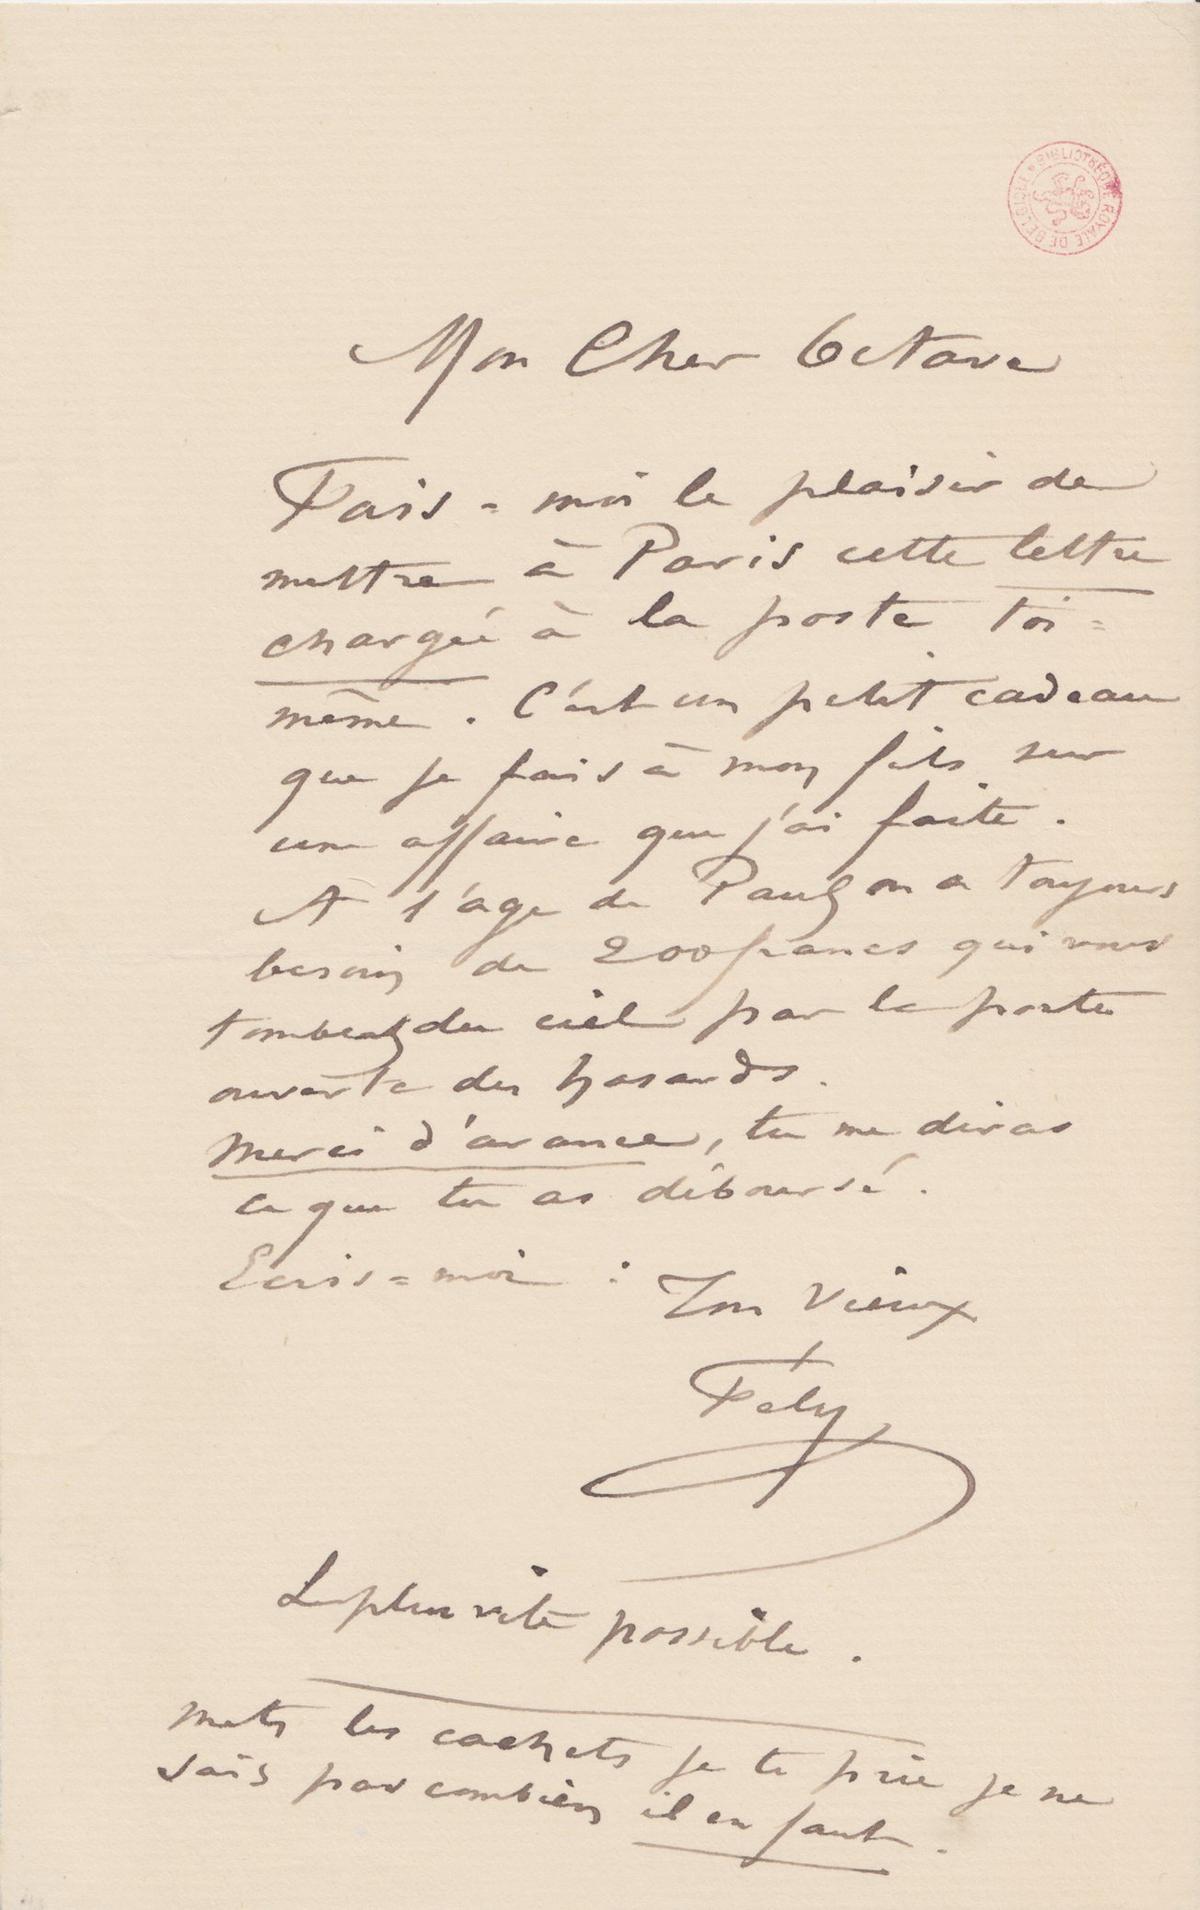 BIBLIOTHÈQUE ROYALE DE BELGIQUE
Mon Cher Octave
Fais-moi le plaisir de
mettre à Paris cette lettre
chargée à la poste toi-
même. C'est un petit cadeau
que je fais à mon fils sur
une affaire que j'ai faite.
A l'âge de Paul on a toujours
besoin de 200 francs qui vous
tombent du ciel par la porte
ouverte des hasards.
Merci d'avance, tu me diras
ce que tu as déboursé.
Ecris-moi : Ton Vieux
Fély
Le plus vite possible.
Mets les cachets je te prie je ne
sais pas combien il en faut.